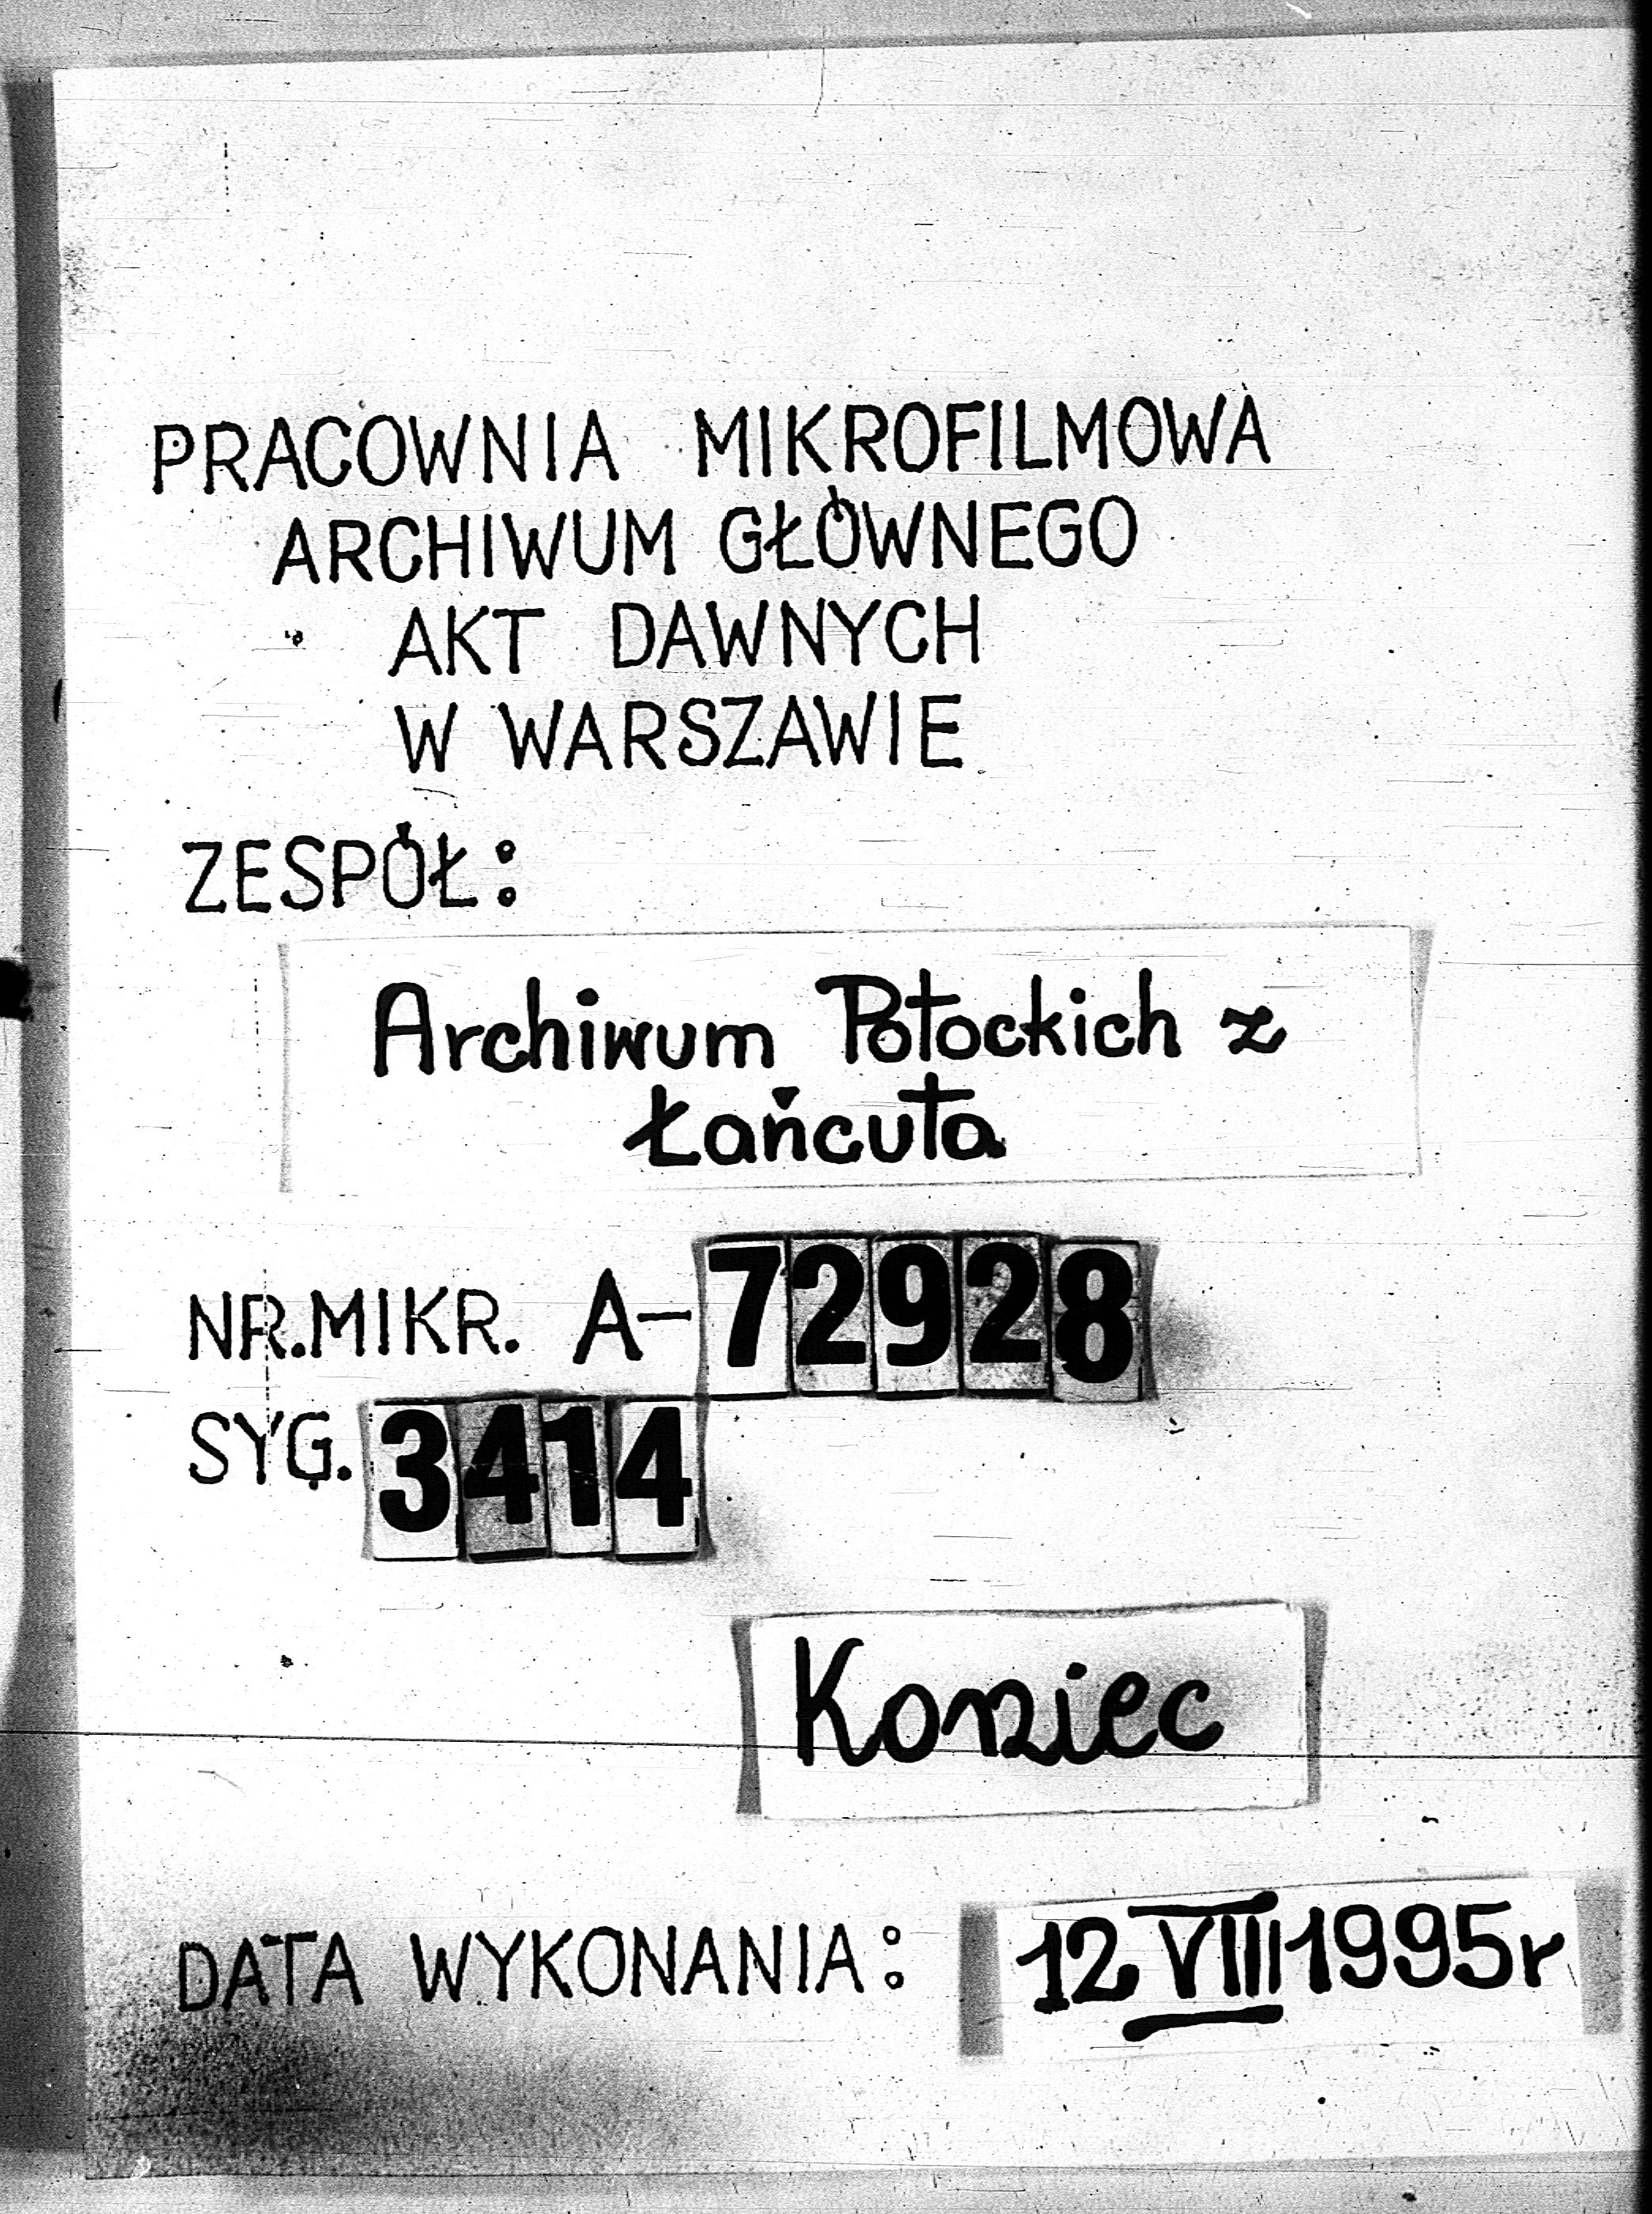 PRACOWNIA MIKROFILMOWA
ARCHIWUM GŁÓWNEGO
AKT DAWNYCH
W WARSZAWIE
ZESPÓŁ:
Archiwum Potockich z
Łańcuta
NR.MIKR. A-72928
SYG. 3414
Koniec
DATA WYKONANIA: 12 VIII 1995r